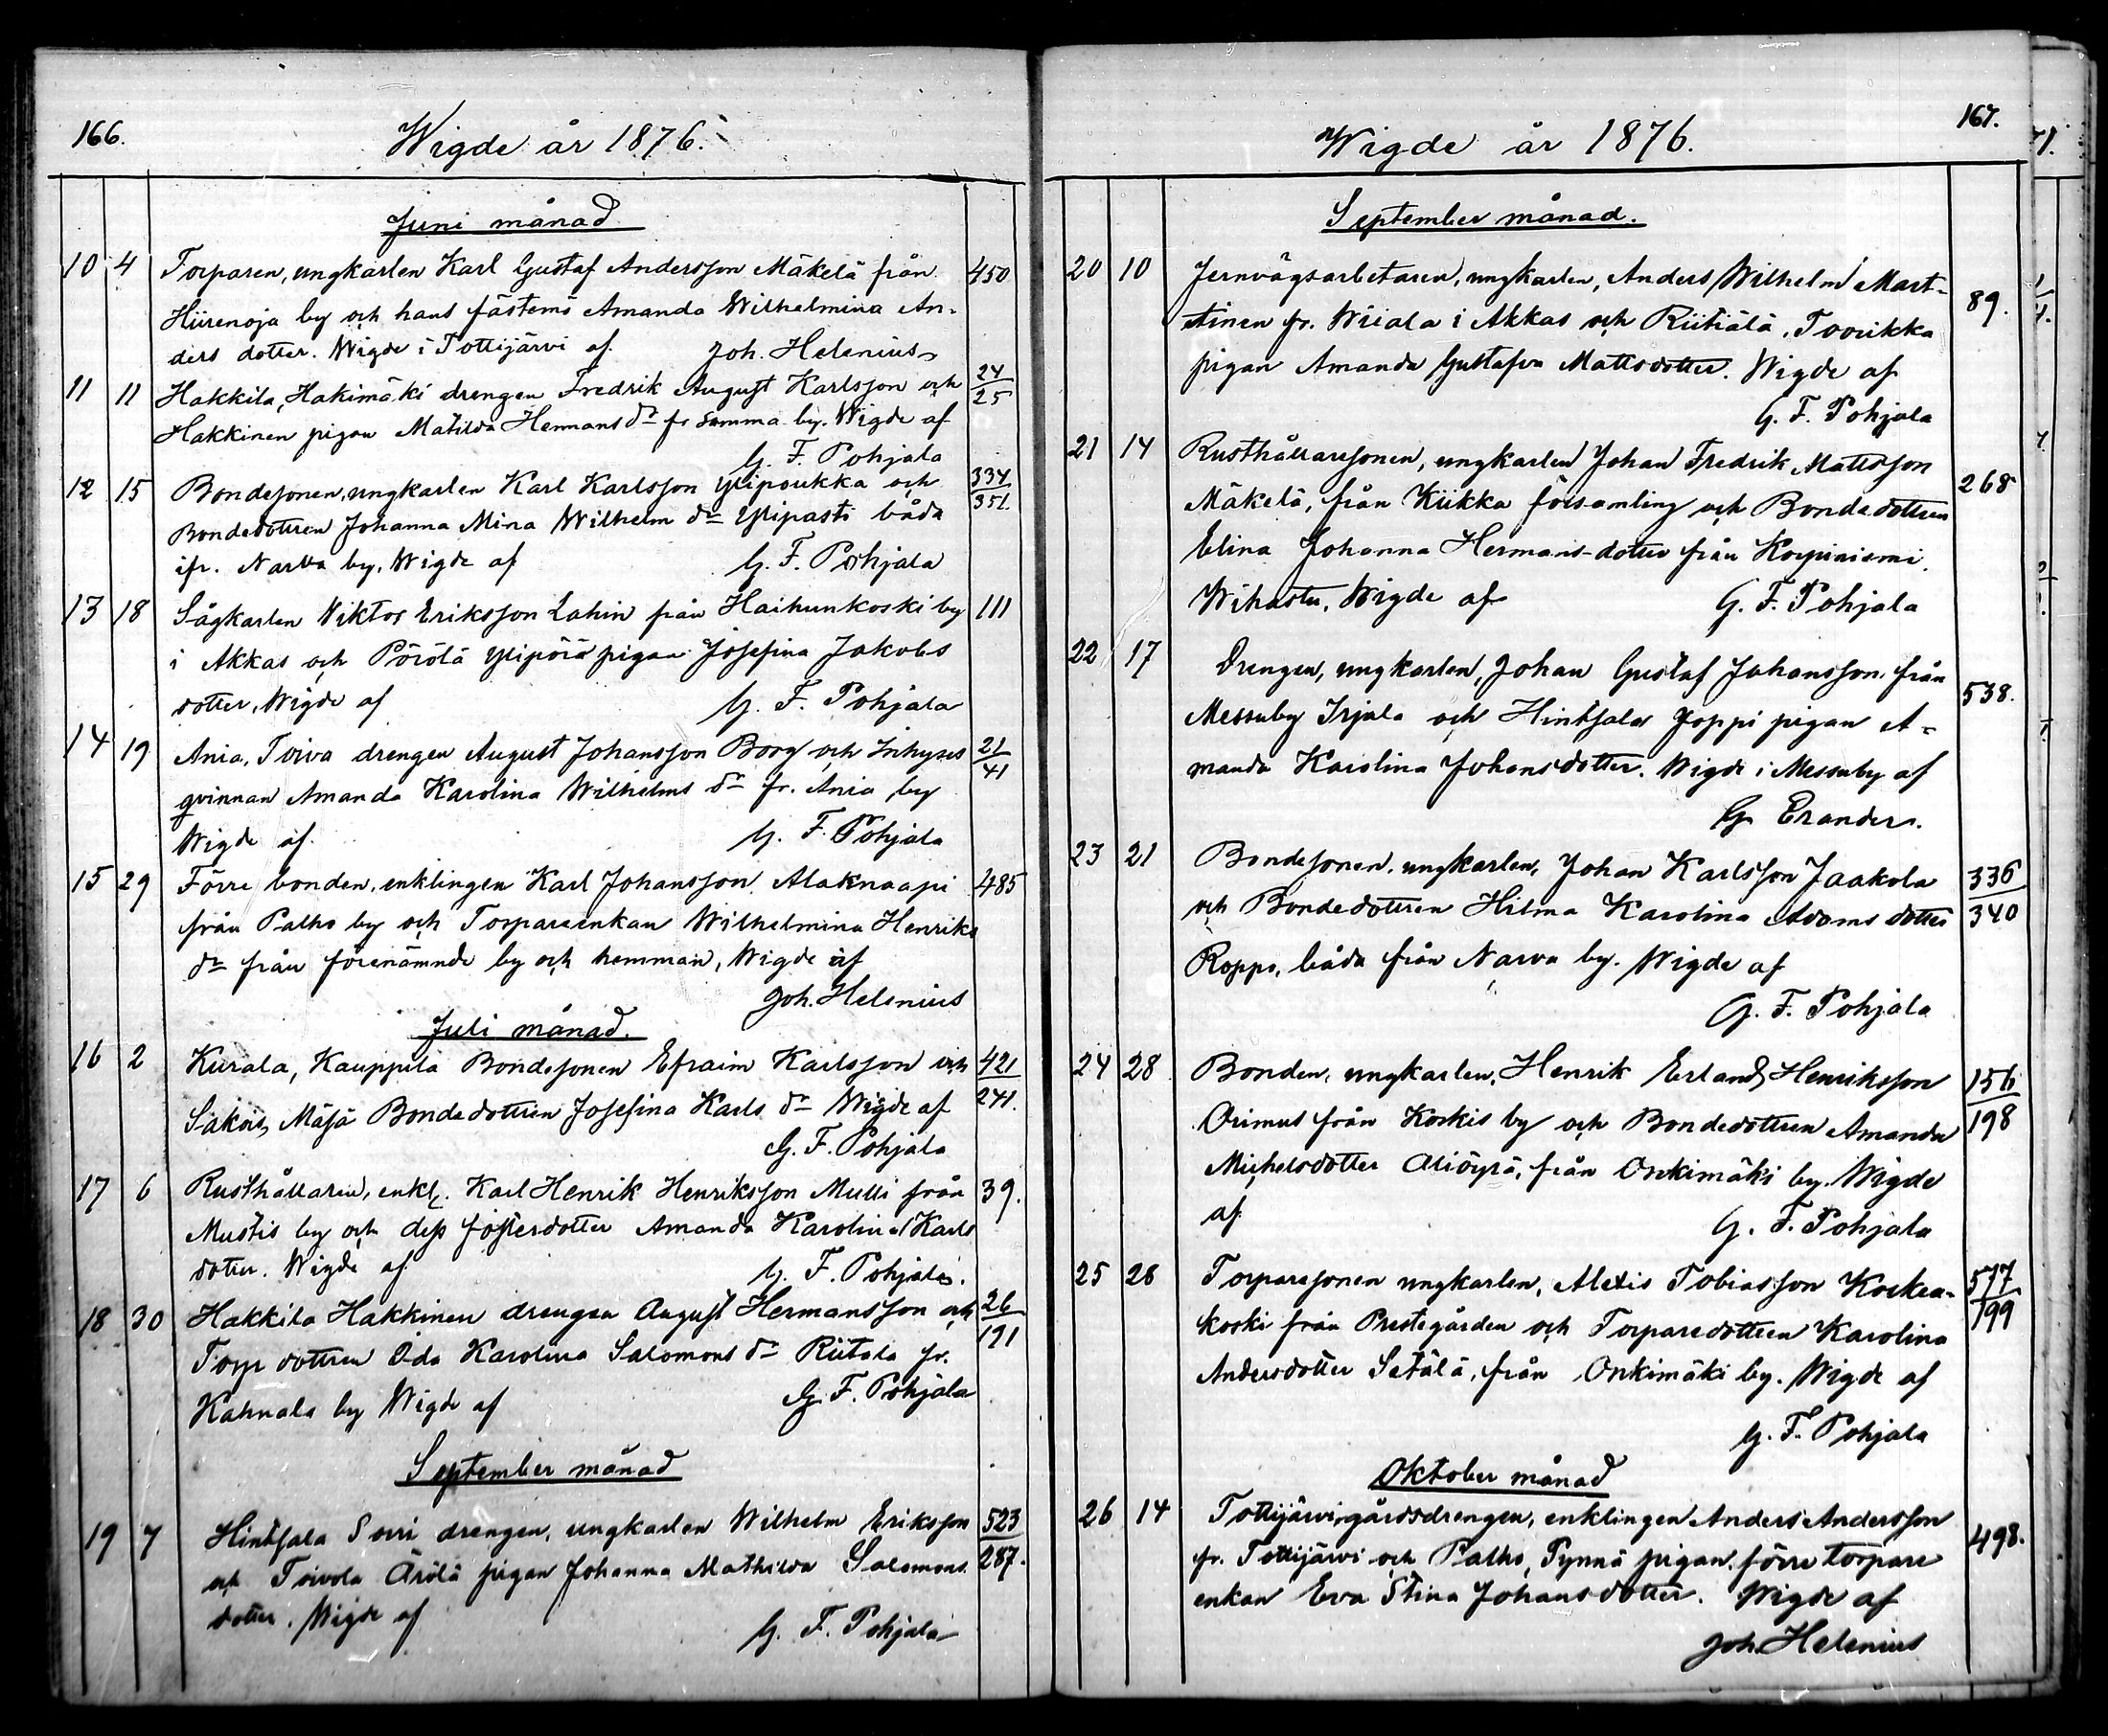 166.
Wigde år 1876.
Juni månad
10 4 Torparen, ungkarlen Karl Gustaf Andersson Mäkelä från 450
Hiirenoja by och hans fästemö Amanda Wilhelmina An-
ders dotter. Wigde i Tottijärvi af Joh. Helenius
11 11 Hakkila, Hakimäki drengen Fredrik August Karlsson och 24/25
Hakkinen pigan Matilda Hermans dr fr samma by. Wigde af
G. F. Pohjala
12 15 Bondesonen, ungkarlen Karl Karlsson Ylipoukka och 334/351.
Bondedottren Johanna Mina Wilhelm dr Ylipasti båda
ifr. Narva by, Wigde af G. F. Pohjala
13 18 Sågkarlen Viktor Eriksson Lahin från Haihunkoski by 111
i Akkas och Pörölä Ylipörä pigan Josefina Jakobs
dotter, Wigde af G. F. Pohjala
14 19 Ania, Toiva drengen August Johansson Borg och Inhyses 21/41
qvinnan Amanda Karolina Wilhelms dr fr. Ania by
Wigde af G. F. Pohjala
15 29 Förre bonden, enklingen Karl Johansson Alaknaapi 485
från Palho by och Torpareenkan Wilhelmina Henriks
dr från förenämnde by och hemman, Wigde af
Joh. Helenius
Juli månad.
16 2 Kurala, Kauppila Bondesonen Efraim Karlsson och 421/241.
Sakois, Mäjä Bondedottren Josefina Karls dr Wigde af
G. F. Pohjala
17 6 Rusthållaren, enkl. Karl Henrik Henriksson Mulli från 39.
Mustis by och dess fosterdotter Amanda Karolina Karls
dotter. Wigde af G. F. Pohjala.
18 30 Hakkila Hakkinen drengen August Hermansson och 26/191
Torp dottren Ida Karolina Salomons dr Riitala fr.
Kahnala by Wigde af G. F. Pohjala
September månad
19 7 Hinksala Sorri drengen, ungkarlen Wilhelm Eriksson 523/287.
och Toivola Ärölä pigan Johanna Mathilda Salomons
dotter. Wigde af G. F. Pohjala
167.
Wigde år 1876.
September månad.
20 10 Jernvägsarbetaren, ungkarlen, Anders Wilhelm Mart- 89.
tinen fr. Wiiala i Akkas och Riitiälä, Tourikka
pigan Amanda Gustafva Mattsdotter. Wigde af
G. F. Pohjala
21 14 Rusthållaresonen, ungkarlen Johan Fredrik Mattsson 268
Mäkelä, från Kiikka församling och Bondedottren
Elina Johanna Hermans-dotter från Korpiniemi
Wihastu. Wigde af G. F. Pohjala
22 17 Drengen, ungkarlen, Johan Gustaf Johansson från 538.
Messuby Irjala och Hinksala Joppi pigan A-
manda Karolina Johansdotter. Wigde i Messuby af
G Erander.
23 21 Bondesonen, ungkarlen, Johan Karlsson Jaakola 336/340
och Bondedottren Hilma Karolina Adams dotter
Roppo, båda från Narva by. Wigde af
G. F. Pohjala
24 28 Bonden, ungkarlen, Henrik Erland Henriksson 156/198
Orimus från Koskis by och Bondedottren Amanda
Michelsdotter Aliöyrä, från Onkimäki by. Wigde
af G. F. Pohjala
25 28 Torparesonen ungkarlen, Alexis Tobiasson Kosken- 577/199
koski från Prestgården och Torparedottren Karolina
Andersdotter Setälä, från Onkimäki by. Wigde af
G. F. Pohjala
Oktober månad
26 14 Tottijärvi gårdsdrengen, enklingen Anders Andersson 498.
fr. Tottijärvi och Palho, Tynnä pigan, förre torpare
enkan Eva Stina Johansdotter. Wigde af
Joh. Helenius